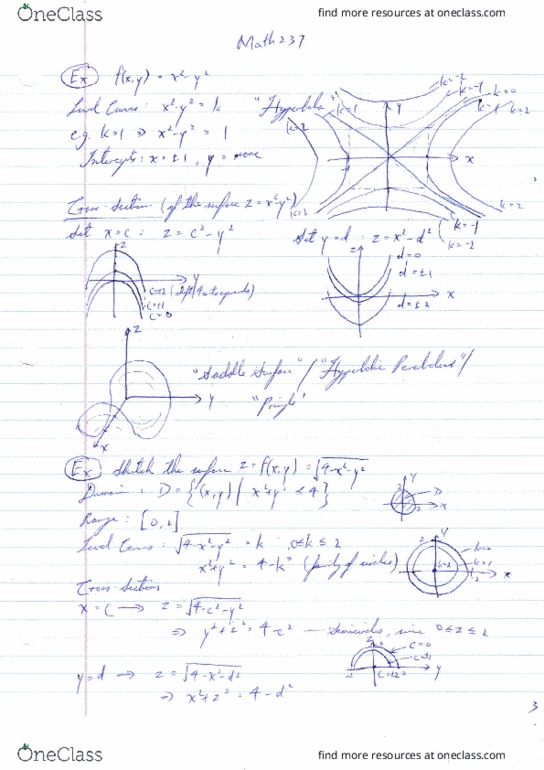 OneClass
find more resources at oneclass.com
Math 237
Ex f(x,y) = x²-y²
Level Curves: x²-y² = k "Hyperbola"
e.g. k=1 ⇒ x²-y² = 1
Intercepts: x=±1, y = none
k=-2
k=-1
k=0
k=1
k=2
y
x
k=2
k=1
k=2
k=2
k=-1
k=-2
Cross-Section (of the surface z=x²-y²)
Set x=c: z = c²-y²
Set y=d: z=x²-d²
z
y
c=0
z
d=0
d=±1
d=±2
x
z
y
x
"Saddle Surface" / "Hyperbolic Paraboloid" /
"Pringle"
Ex Sketch the surface z=f(x,y)=√4-x²-y²
Domain: D={(x,y)| x²+y² ≤4}
Range: [0,2]
Level Curves: √4-x²-y² = k, 0≤k≤2
x²+y² = 4-k² (family of circles)
y
D
x
2
y
k=0
k=1
x
Cross-Section
x=c → z=√4-c²-y²
⇒ y²+z²=4-c² — semicircles, since 0≤z≤2
z
c=0
y
y=d → z=√4-x²-d²
⇒ x²+z²=4-d²
3
OneClass
find more resources at oneclass.com